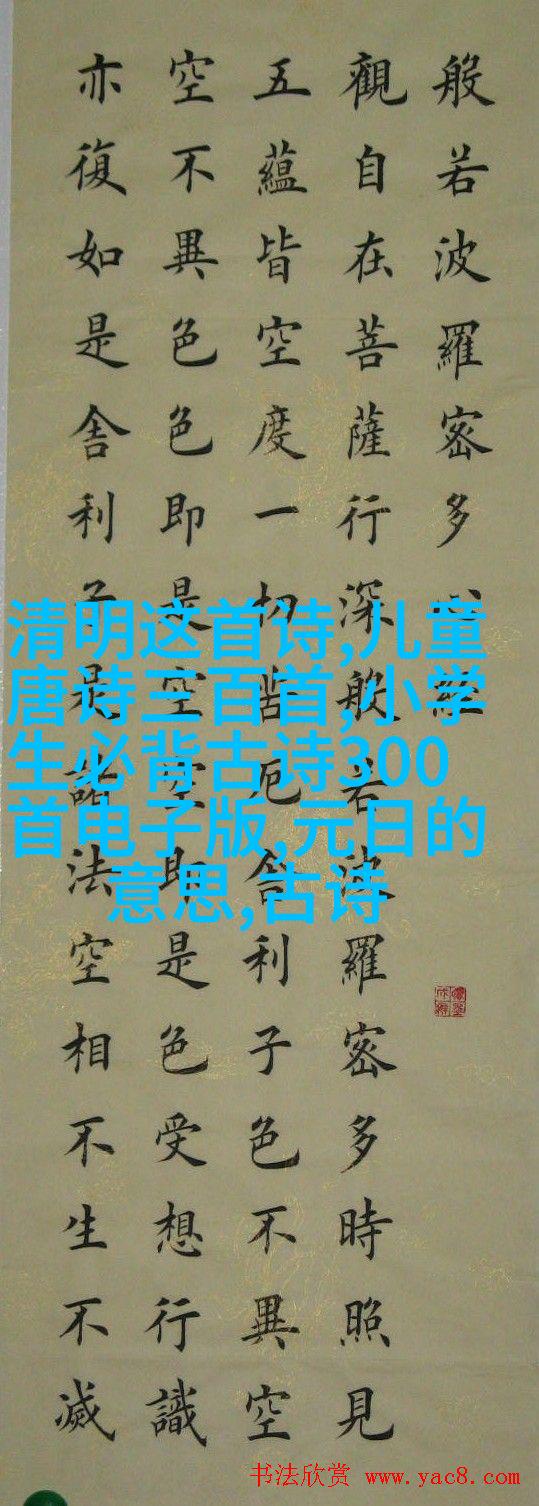 般若波羅密多心經
觀自在菩薩行深般若波羅密多時照見
五蘊皆空度一切苦厄舍利子色不異空
空不異色色即是空空即是色受想行識
亦復如是舍利子是諸法空相不生不滅
清明这首诗,儿童
唐诗三百首,小学
生必背古诗300
首电子版,元日的
意思,古诗
书法欣赏 www.yac8.com